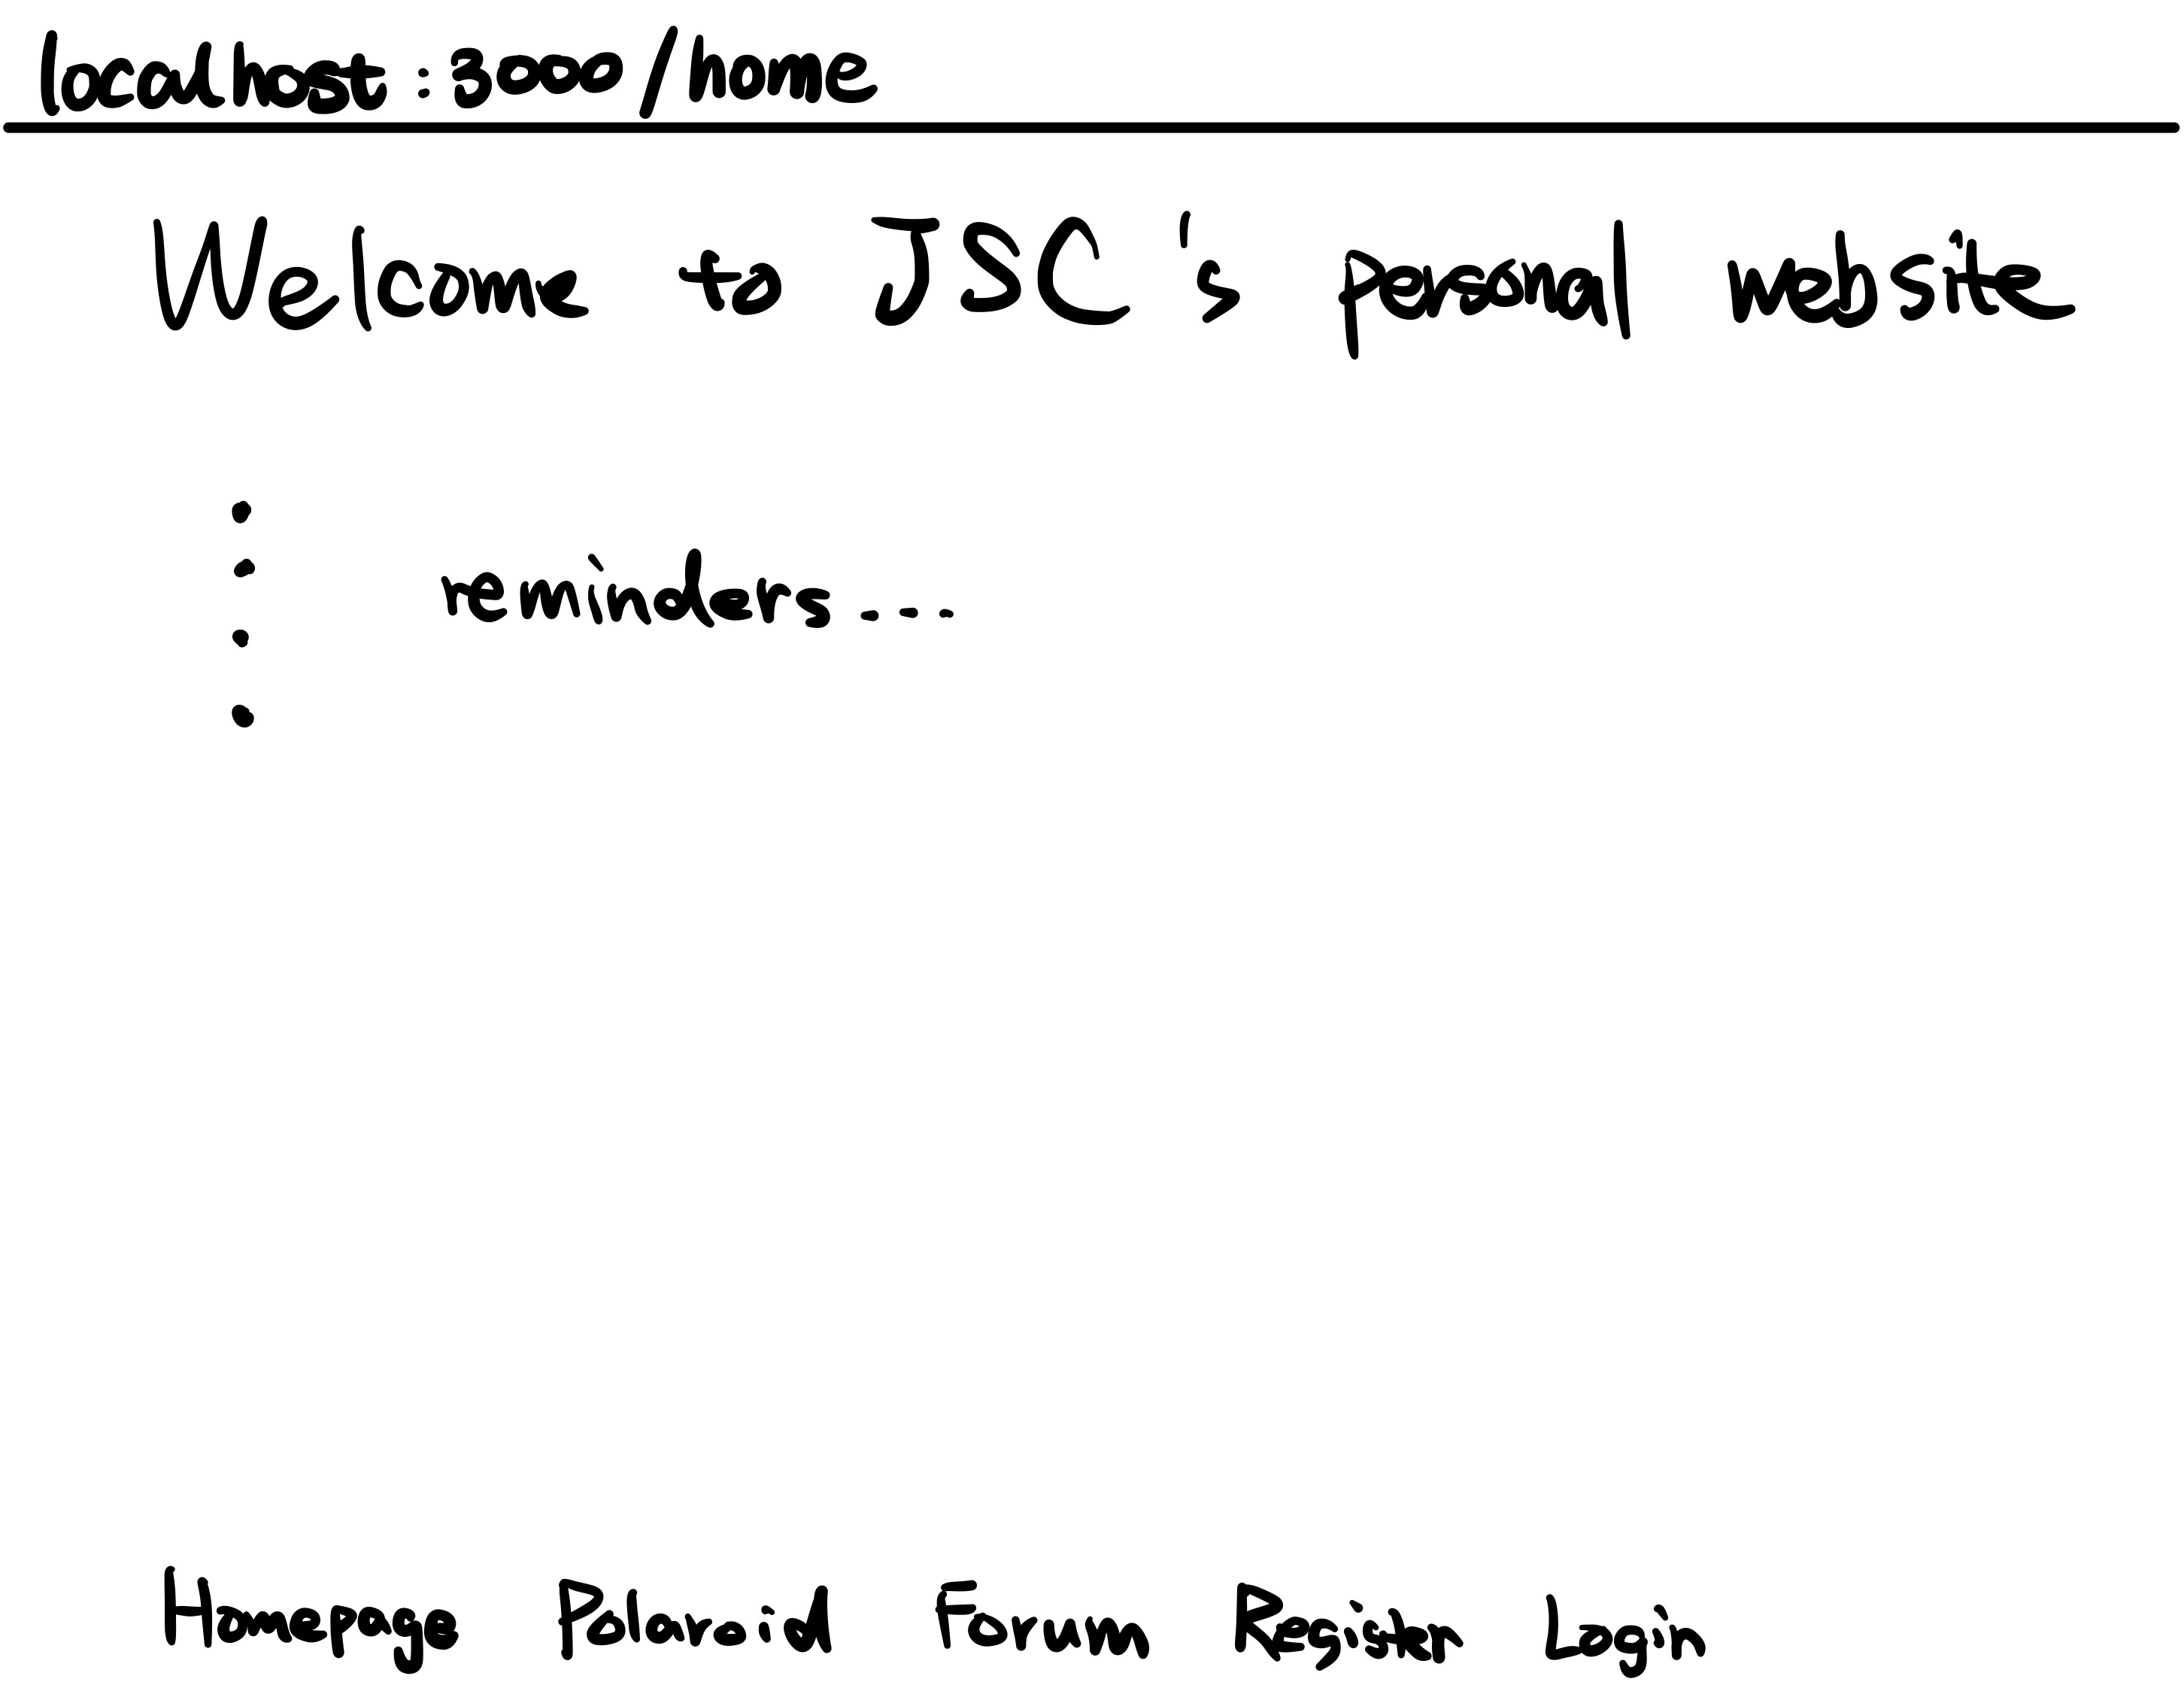 localhost:3000/home
Welcome to JSC's personal website
reminders....
Homepage Polaroid Forum Register Login